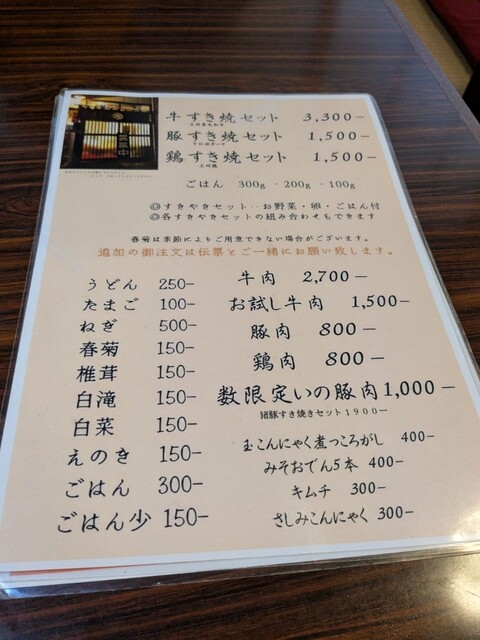 牛すき焼セット 3,300-
豚すき焼セット 1,500-
鶏すき焼セット 1,500-
ごはん 300g ・200g ・100g
◎すきやきセット‥お野菜・卵・ごはん付
◎各すきやきセットの組み合わせもできます
春菊は季節によりご用意できない場合がございます。
追加の御注文は伝票とご一緒にお願い致します。
うどん 250-
たまご 100-
ねぎ 500-
春菊 150-
椎茸 150-
白滝 150-
白菜 150-
えのき 150-
ごはん 300-
ごはん少 150-
牛肉 2,700-
お試し牛肉 1,500-
豚肉 800-
鶏肉 800-
数限定いの豚肉1,000-
猪豚すき焼きセット1900-
玉こんにゃく煮っころがし 400-
みそおでん5本 400-
キムチ 300-
さしみこんにゃく 300-